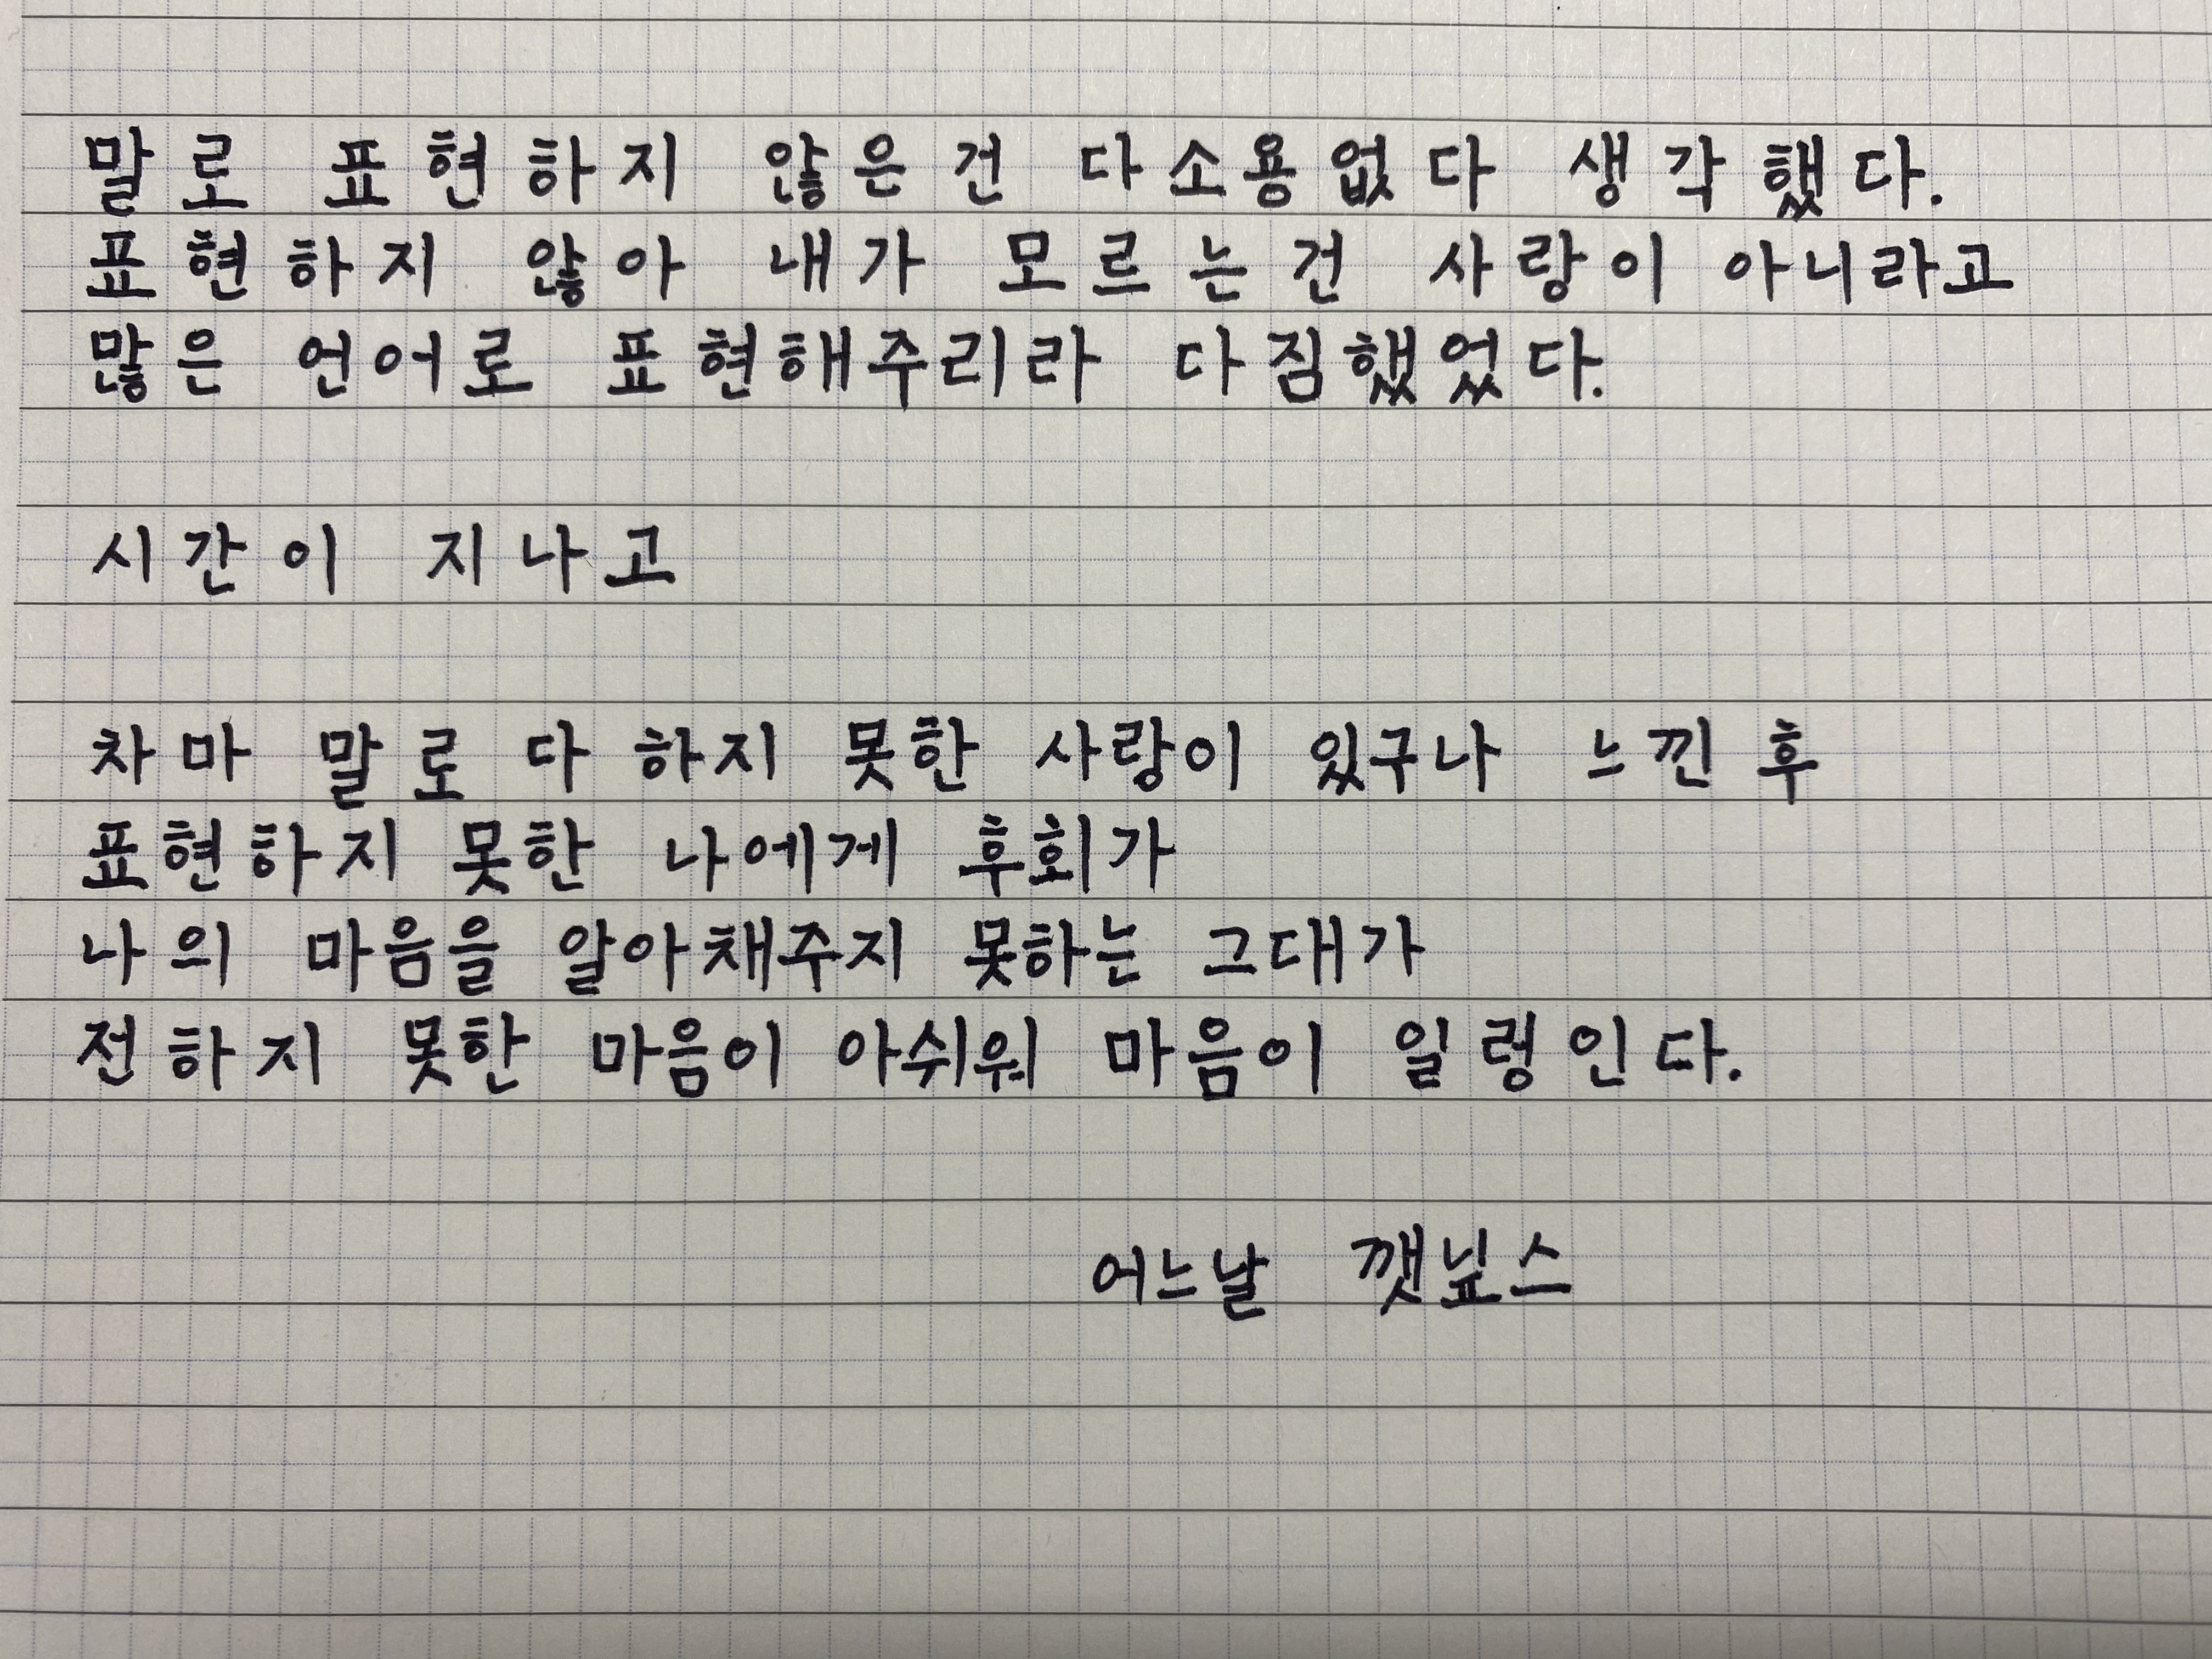 말로 표현하지 않은 건 다 소용없다 생각했다.
표현하지 않아 내가 모르는 건 사랑이 아니라고
많은 언어로 표현해주리라 다짐했었다.
시간이 지나고
차마 말로 다 하지 못한 사랑이 있구나 느낀 후
표현하지 못한 나에게 후회가
나의 마음을 알아채주지 못하는 그대가
전하지 못한 마음이 아쉬워 마음이 일렁인다.
어느날 깻닢스